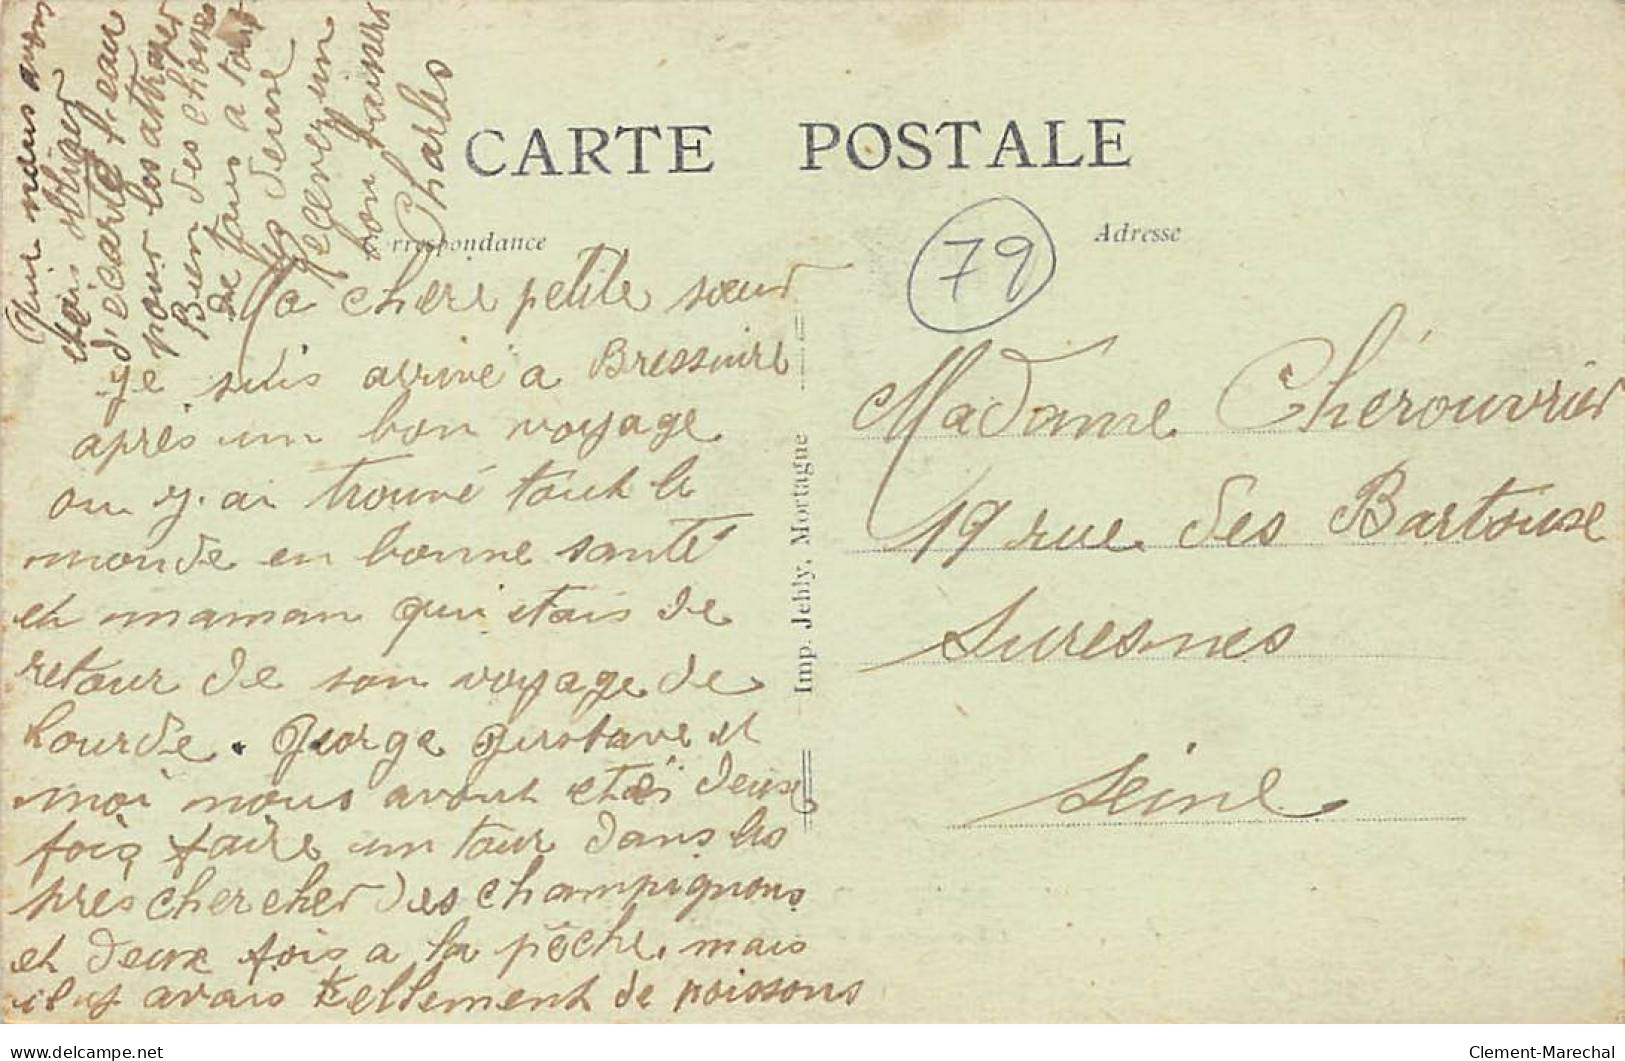 CARTE POSTALE
Correspondance
Adresse
79
Ma chere petite sœur
je suis arrivé a Bressuire
après un bon voyage
ou j'y ai trouvé tout le
monde en bonne santé
et maman qui etais de
retour de son voyage de
Lourde. George Gustave et
moi nous avont etéé deux
fois faire un tour dans les
pres chercher des champignons
et deux fois a la pêche, mais
il y avais tellement de poissons
que nous avons
etais obliger
d'ecarté l'eau
pour les attraper
Bien des choses
de tous a tout
Recever un
bon baiser
Charles
Imp. Jehly, Mortagne
Madame Chérouvrier
19 rue des Bartouse
Suresnes
Seine
delcampe.net
Clement-Marechal